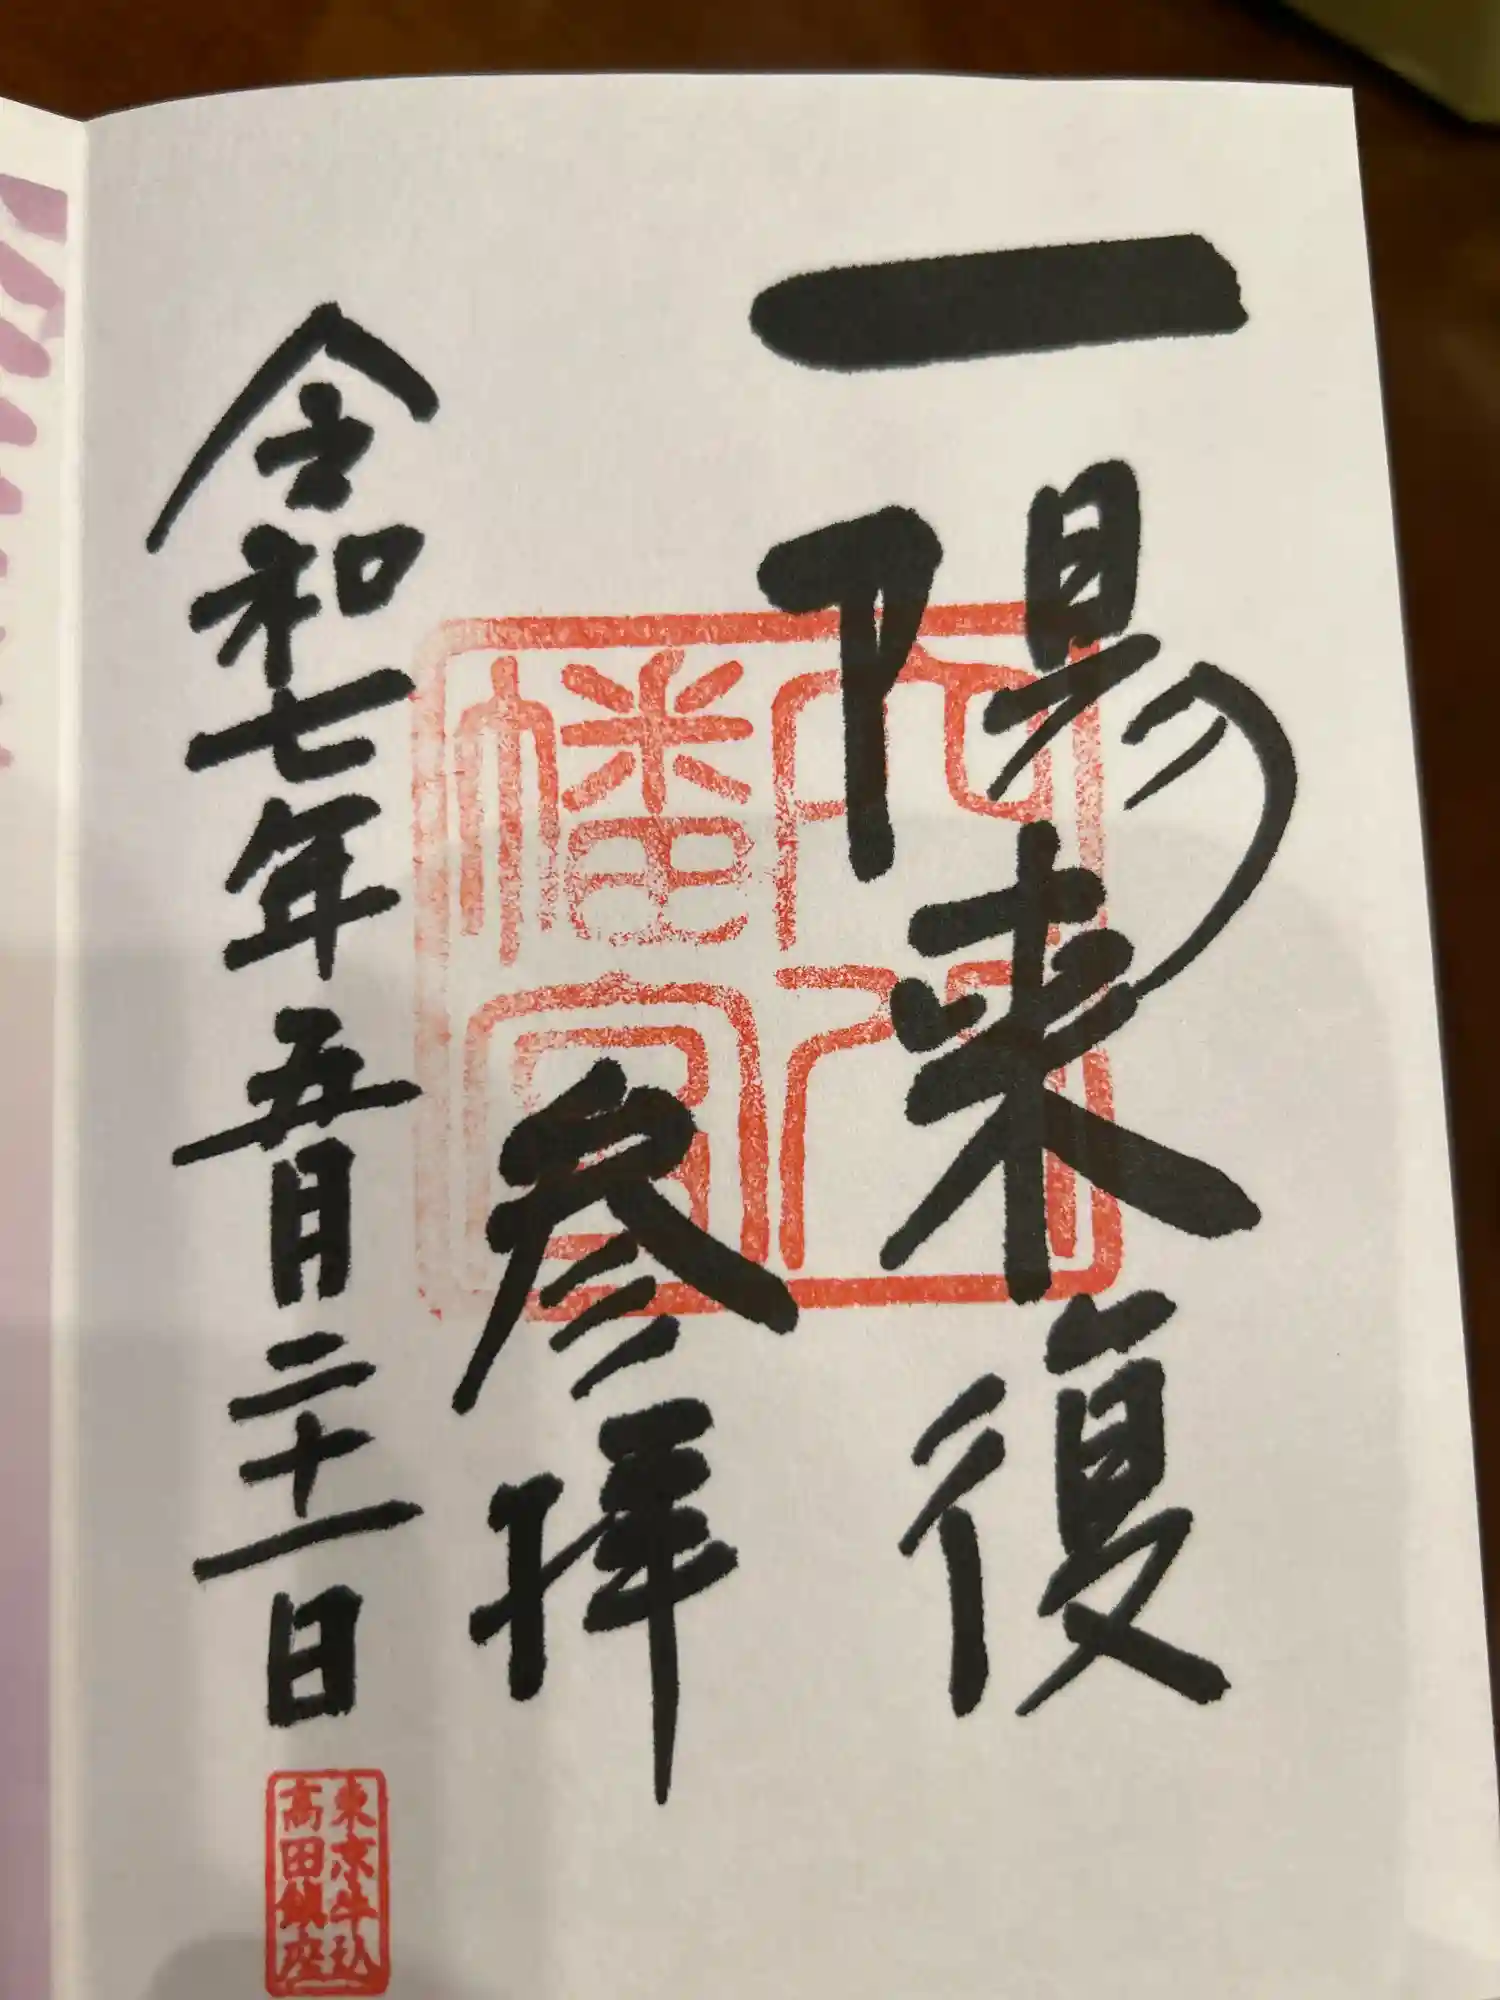 一陽来復
参拝
令和七年五月二十一日
穴八幡宮
東京牛込
高田鎮座